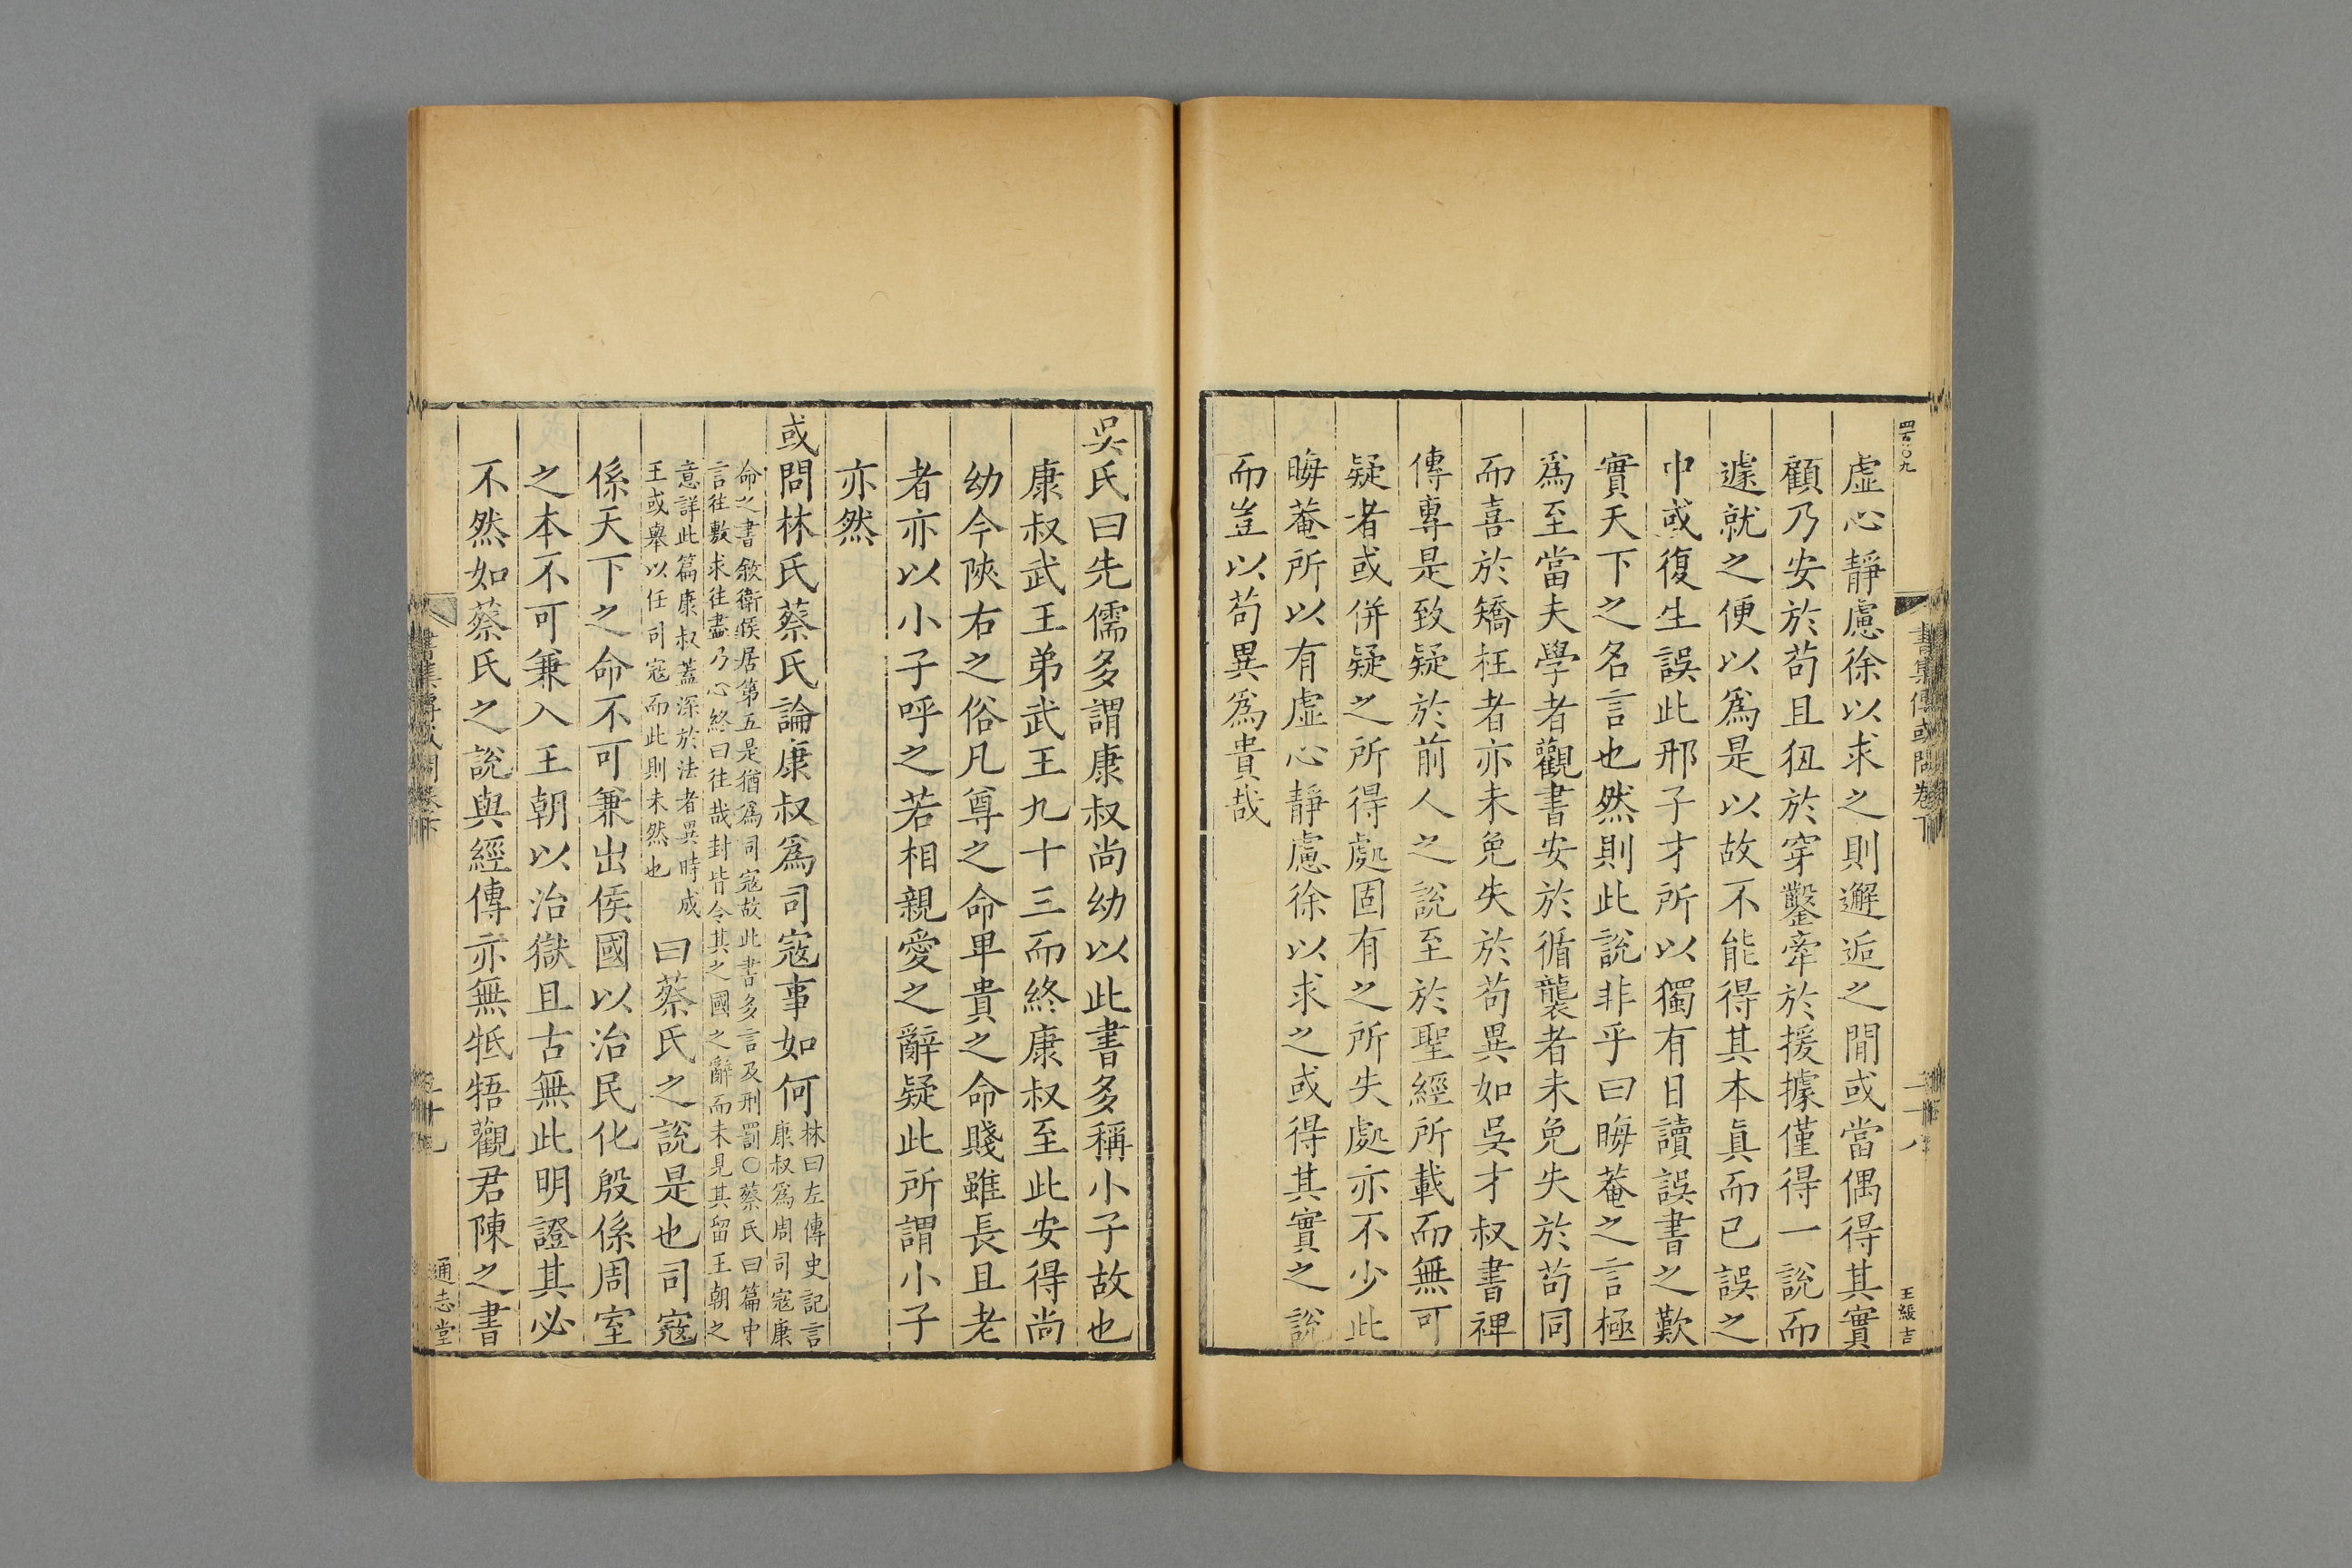 四百〇九
書集傳或問卷下
二十八
王張吉
虛心靜慮徐以求之則邂逅之閒或當偶得其實
顧乃安於苟且狃於穿鑿牽於援據僅得一說而
遽就之便以爲是以故不能得其本眞而已誤之
中或復生誤此邢子才所以獨有日讀誤書之歎
實天下之名言也然則此說非乎曰晦菴之言極
爲至當夫學者觀書安於循襲者未免失於苟同
而喜於矯枉者亦未免失於苟異如吳才叔書裨
傳專是致疑於前人之說至於聖經所載而無可
疑者或併疑之所得處固有之所失處亦不少此
晦菴所以有虛心靜慮徐以求之或得其實之說
而豈以苟異爲貴哉
吳氏曰先儒多謂康叔尚幼以此書多稱小子故也
康叔武王弟武王九十三而終康叔至此安得尚
幼今陝右之俗凡尊之命卑貴之命賤雖長且老
者亦以小子呼之若相親愛之辭疑此所謂小子
亦然
或問林氏蔡氏論康叔爲司寇事如何
林曰左傳史記言
康叔爲周司寇康
命之書敘衛侯居第五是猶爲司寇故此書多言及刑罰〇蔡氏曰篇中
言往敷求往盡乃心終曰往哉封皆令其之國之辭而未見其留王朝之
意詳此篇康叔蓋深於法者異時成
王或舉以任司寇而此則未然也
曰蔡氏之說是也司寇
係天下之命不可兼出侯國以治民化殷係周室
之本不可兼入王朝以治獄且古無此明證其必
不然如蔡氏之說與經傳亦無牴牾觀君陳之書
書集傳或問卷下
二十九
通志堂